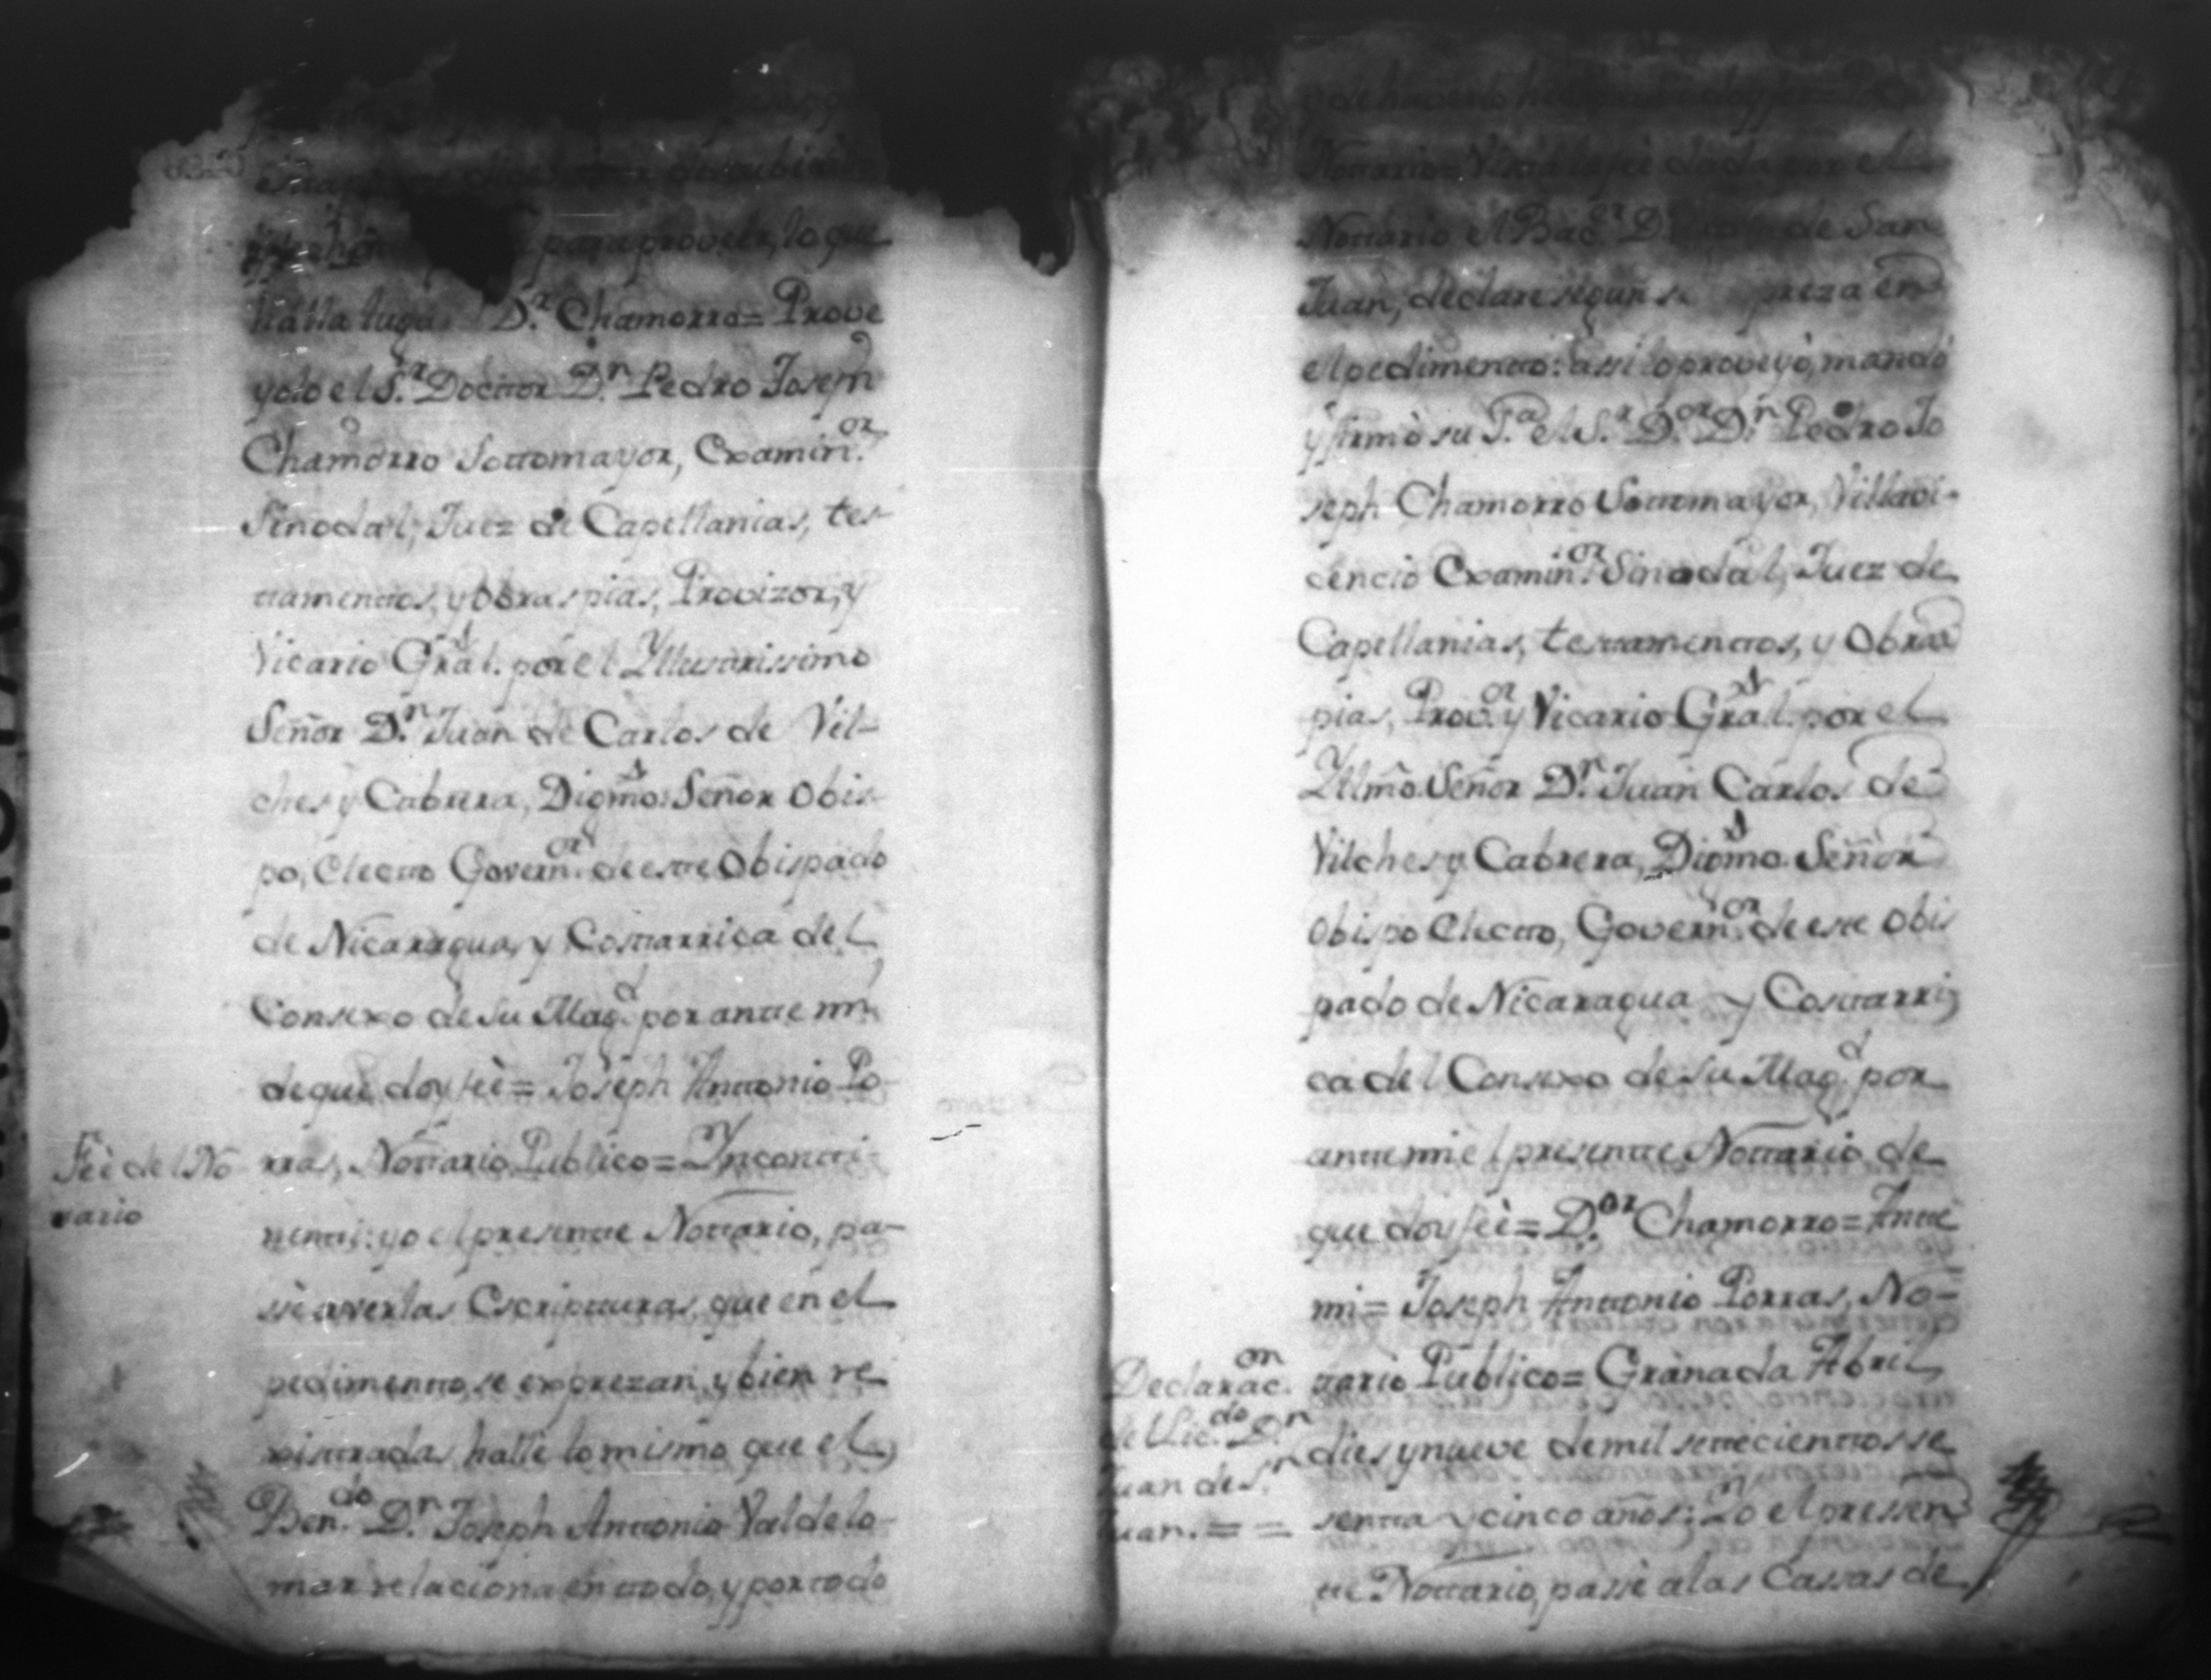 para proveer, lo que
halla lugar D.r Chamorro = Prove
yolo el S.r Docttor D.n Pedro Joseph
Chamorro Sottomayor, Examin.or
Sinodal, Juez de Capellanias, tes-
ttamenttos, y Obras pias, Provizor, y
Vicario Gral. por el Yllusttrissimo
Señor D.n Juan de Carlos de Vil-
ches y Cabrera, Digmo. Señor Obis-
po, Electto Govern.or de estte Obispado
de Nicarragua, y Costtarrica del
Consexo de Su Mag.d por antte mi
de que doy feè = Joseph Anttonio Po-
Feè del No
ttario
rras, Nottario Publico = Yncontti-
nentti: yo el presentte Nottario, pa-
sè a ver las Escriptturas, que en el
pedimentto, se exprezan, y bien re
xisttradas hallè lo mismo que el
Ben.do D.n Joseph Anttonio Valdelo-
mar relaciona en ttodo, y por ttodo
Nottario = Vistta la feè dada por el
Nottario el Bac.r D. de San
Juan, declare segun se preza en
el pedimentto: assi lo proveyò, mandò
y firmò su S.a el S.r D.or D.n Pedro Jo
seph Chamorro Sottomayor, Villavi-
cencio Examin.or Sinodal, Juez de
Capellanias, testtamenttos, y Obras
pias, Prov.or y Vicario Gral. por el
Yllmo. Señor D.n Juan Carlos de
Vilches y Cabrera, Digmo. Señor
Obispo Electto, Govern.or de este Obis
pado de Nicaragua y Costtarri
ca del Consexo de Su Mag.d por
antte mi el presentte Nottario de
que doy feè = D.or Chamorro = Antte
mi = Joseph Anttonio Porras, No-
Declarac.on
del Lic.do D.n
Juan de S.n
Juan. = =
ttario Publico = Granada Abril
dies y nueve de mil settecienttos se
sentta y cinco años; Yo el presen
tte Nottario, passè a las Cassas de